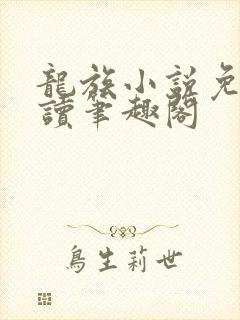 龍族小說免
讀筆趣閣
鳥生莉世